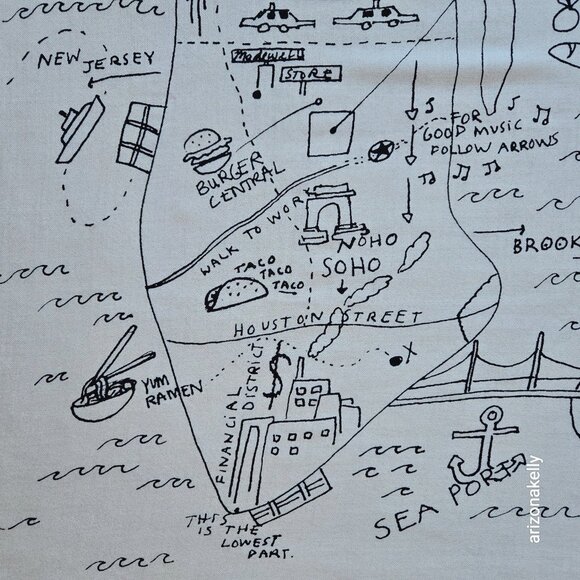 Madewell
STORE
NEW JERSEY
FOR
GOOD MUSIC
FOLLOW ARROWS
BURGER
CENTRAL
WALK TO WORK
NOHO
BROOK
SOHO
TACO
TACO
TACO
HOUSTON STREET
X
YUM
RAMEN
FINANCIAL
DISTRICT
$
SEA PORT
THIS
IS THE
LOWEST
PART.
arizonakelly